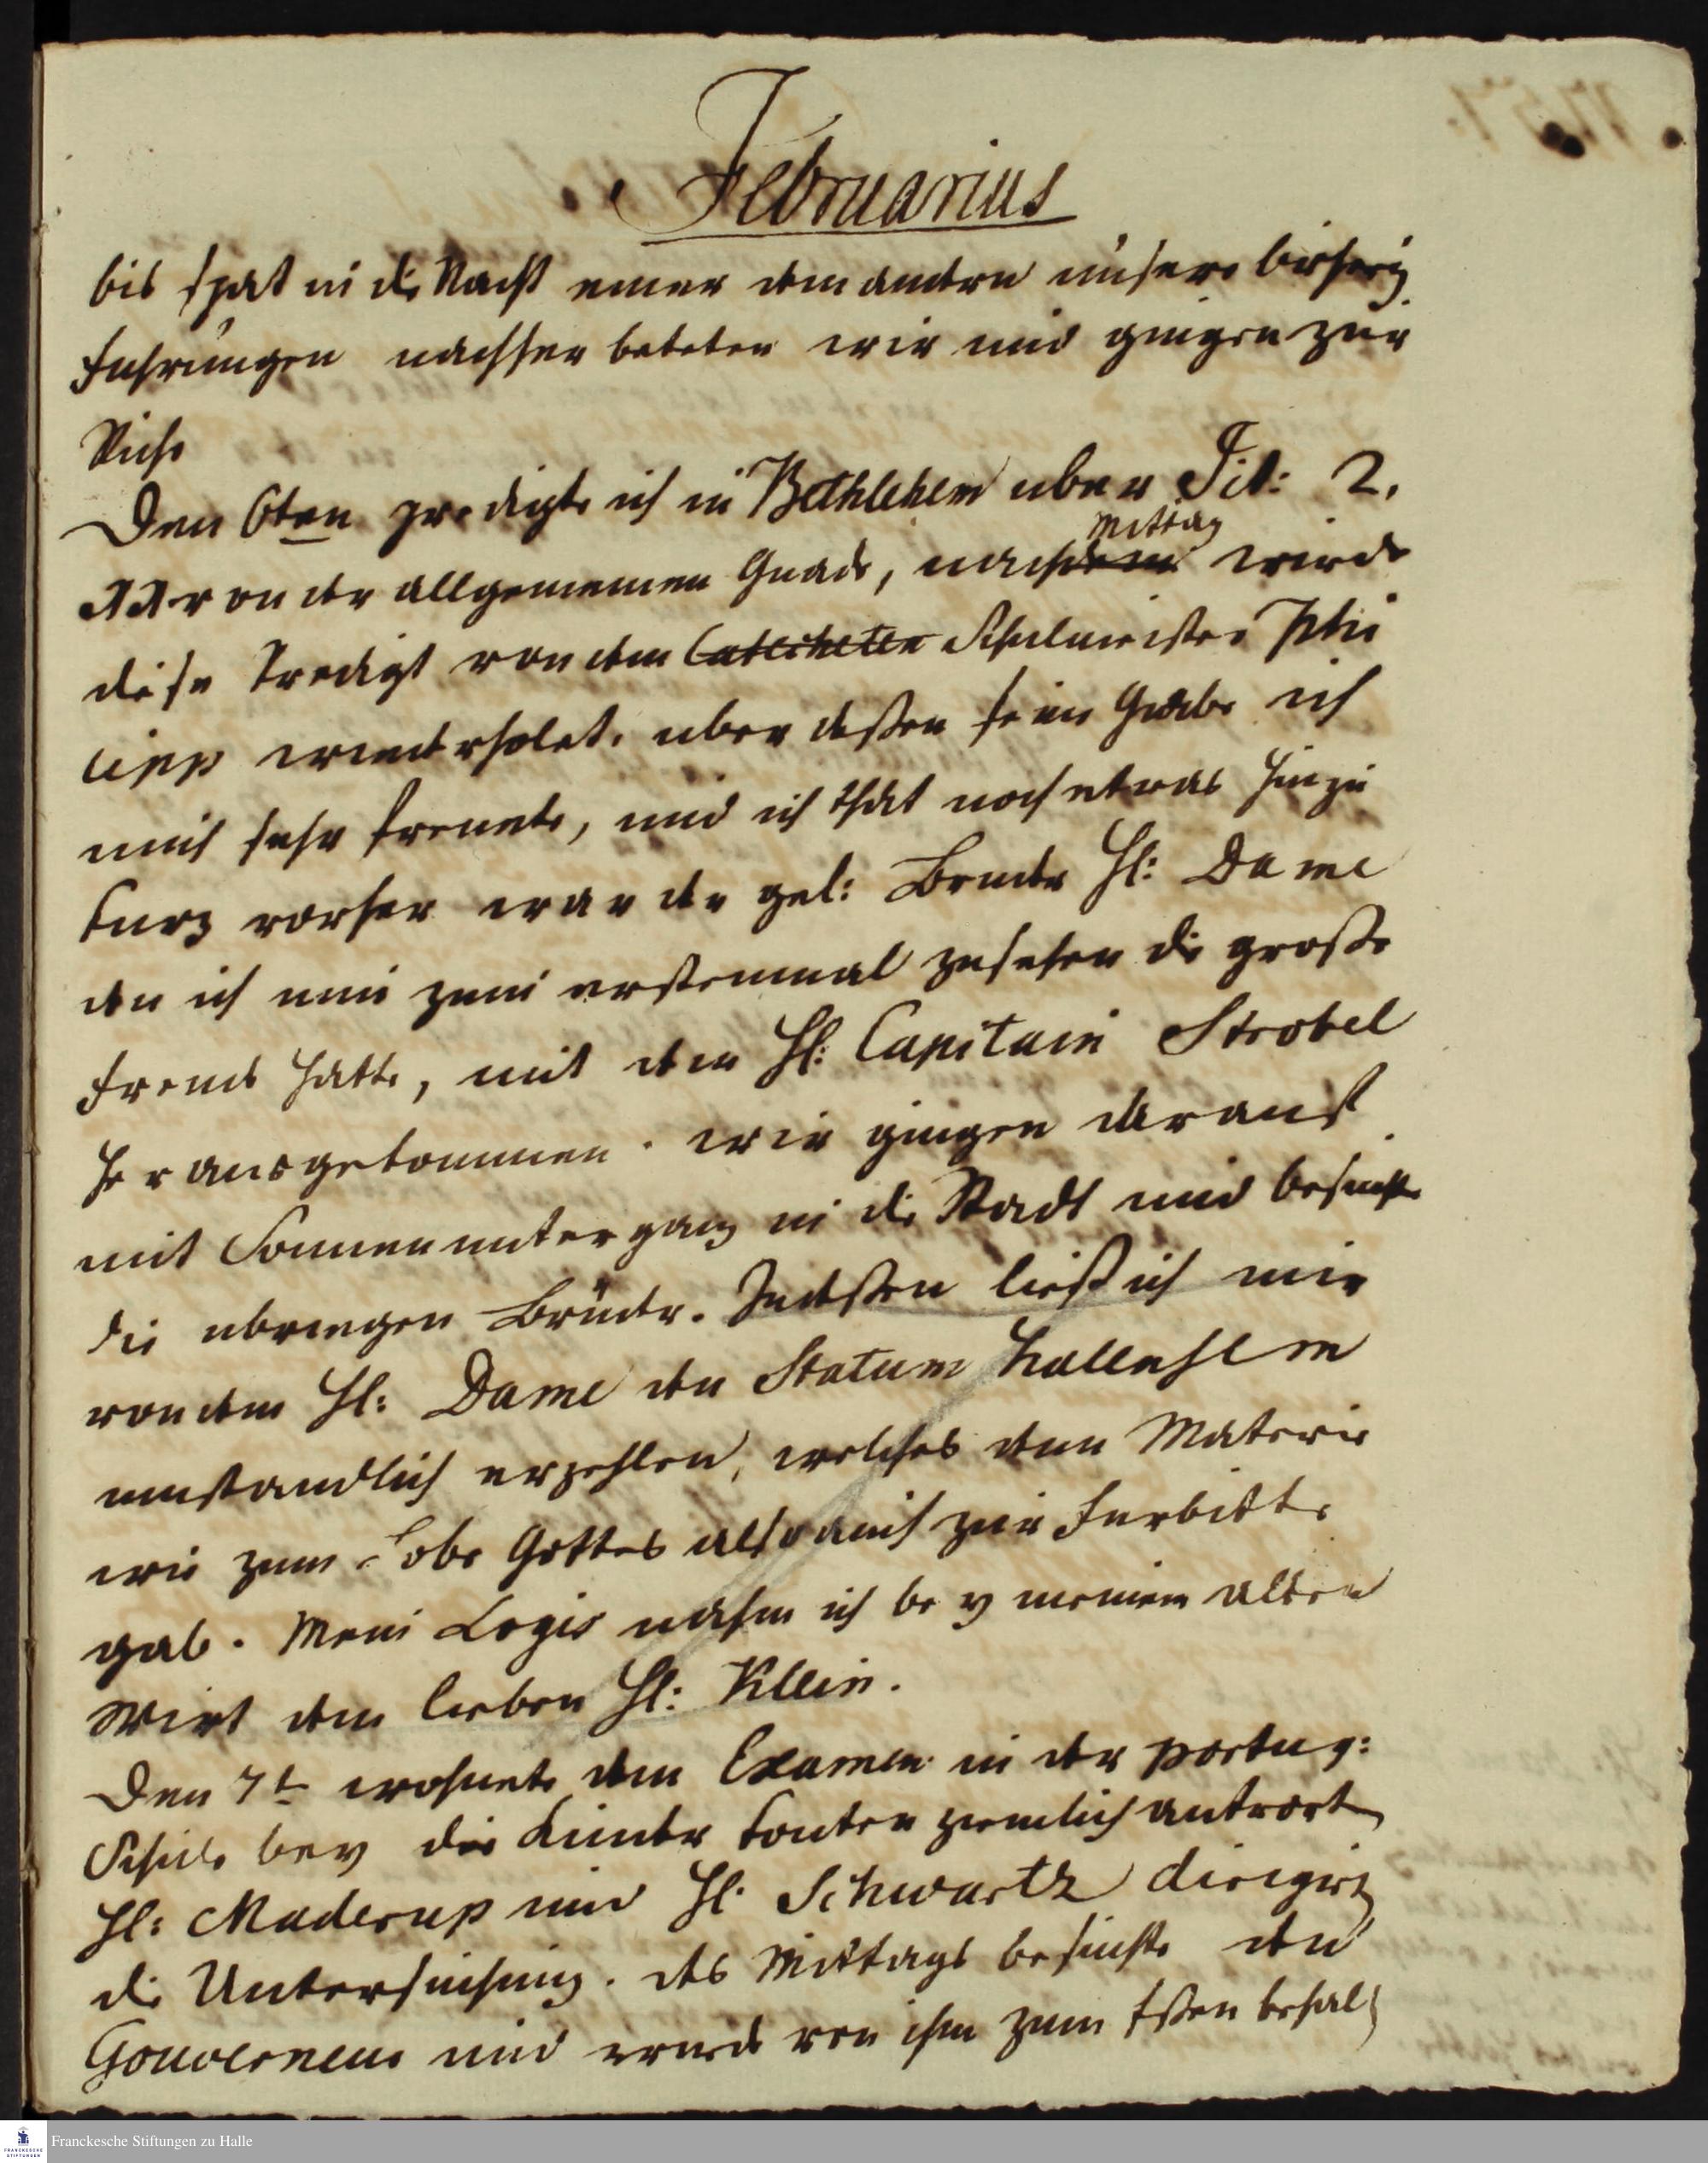 Februarius
bis spat in die Nacht einer dem andern unsere bisherig
Fuhrungen nachher beteten wir und gingen zur
Ruhe
Den 6ten predigte ich in Bethlehem uber Tit: 2,
11 von der allgemeinen Gnade, nachdem Mittag wurde
diese Predigt von dem Catecheten Schulmeister Phi
lipp wiederholet. uber deßen seine Gabe ich
mich sehr freuete, und ich that noch etwas hinzu
kurz vorher war der gel: Bruder H: Dame
den ich nun zum erstenmal zusehen die große
Freude hatte, mit dem H: Capitain Strobel
herausgekommen. wir gingen darauf
mit Sonnenuntergang in die Stadt und besuchte
die ubrigen Brüder. Indeßen ließ ich mir
von dem H: Dame den Statum Hallensem
umstandlich erzehlen, welches denn Materie
wie zum Lobe Gottes also auch zur Furbitte
gab. Mein Logis nahm ich bey meinem alten
Wirt dem lieben H: Klein.
Den 7t wohnete dem Examen in der portug:
Schule bey die Kinder konten ziemlich antworten
H: Maderup und H: Schwartz dirigirten
die Untersuchung. des Mittags besuchte den
Gouverneur und wurde von ihm zum Eßen behalten
Franckesche Stiftungen zu Halle